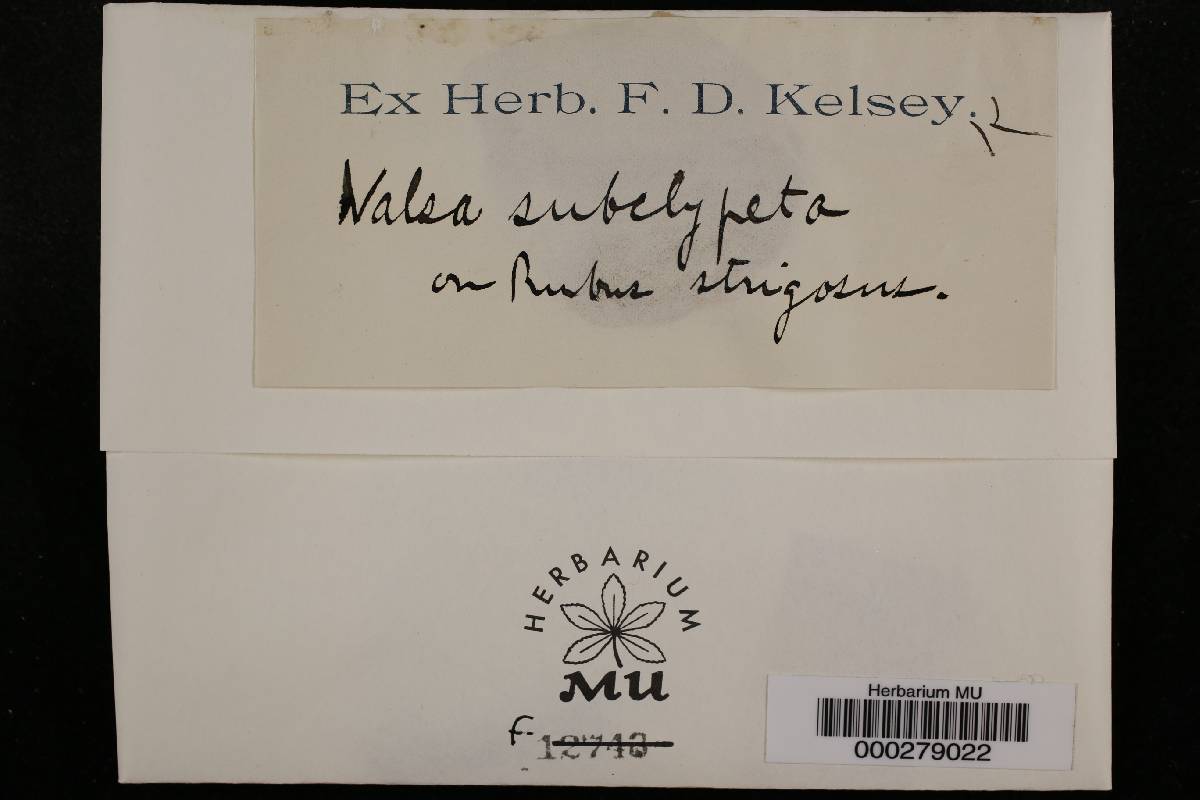 Ex Herb. F. D. Kelsey.
Valsa subclypeta
on Rubus strigosus.
HERBARIUM
MU
F-
Herbarium MU
000279022